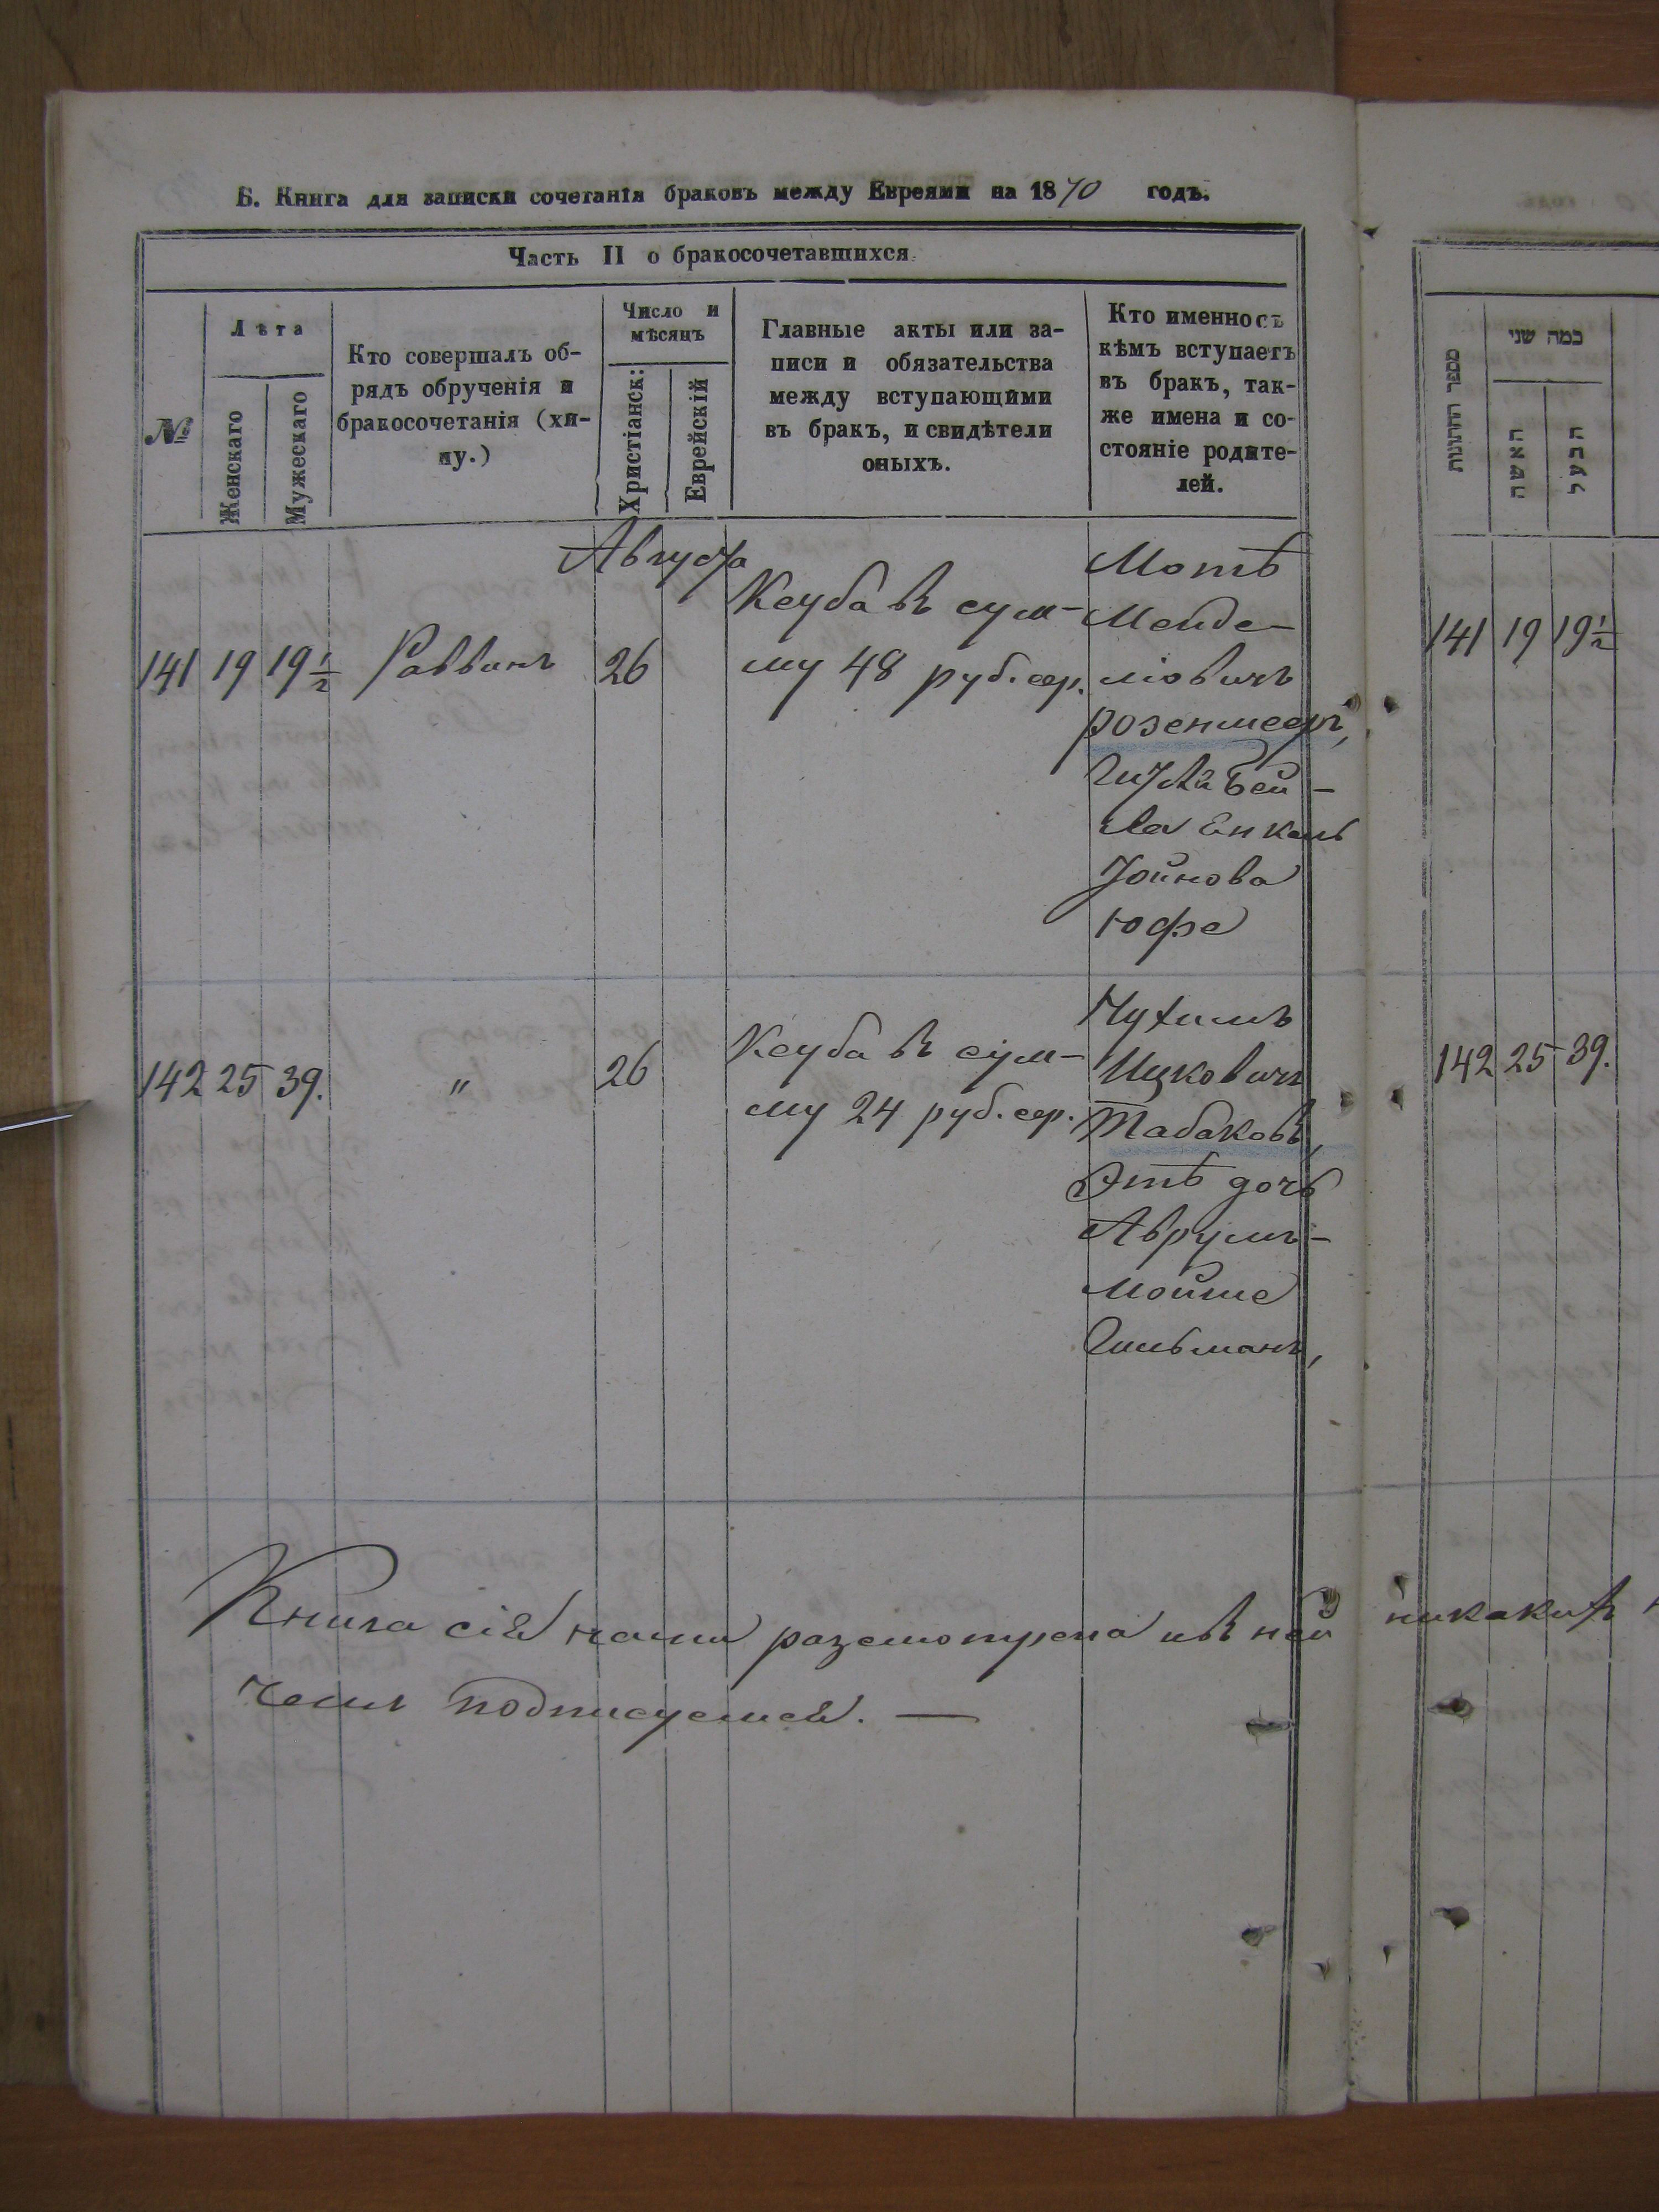 Б. Книга для записки сочетанія браковъ между Евреями на 1870 годъ.
Часть II о бракосочетавшихся
№
Лѣта
Женскаго
Мужескаго
Кто совершалъ об-
рядъ обрученія и
бракосочетанія (хи-
пу.)
Число и
мѣсяцъ
Христіанск:
Еврейскій
Главные акты или за-
писи и обязательства
между вступающими
въ бракъ, и свидѣтели
оныхъ.
Кто именно съ
кѣмъ вступаетъ
въ бракъ, так-
же имена и со-
стояніе родите-
лей.
Августа
141 19 19½ Раввинъ 26
Ксуба въ сум-
му 48 руб. сер.
Мотѣ
Менде-
ліовичъ
Розеншеръ,
Бей-
ла Енкель
Іойнова
Юфе
142 25 39. " 26
Ксуба въ сум-
му 24 руб. сер.
Нухимъ
Ицковичъ
Табаковъ,
Этѣ дочь
Аврумъ-
Мойше
Гильманъ,
Книга сія нами разсмотрена и въ ней никакихъ
чемъ подписуемся. —
מספר החתונות
כמה שני
האשה
הבעל
141 19 19½
142 25 39.